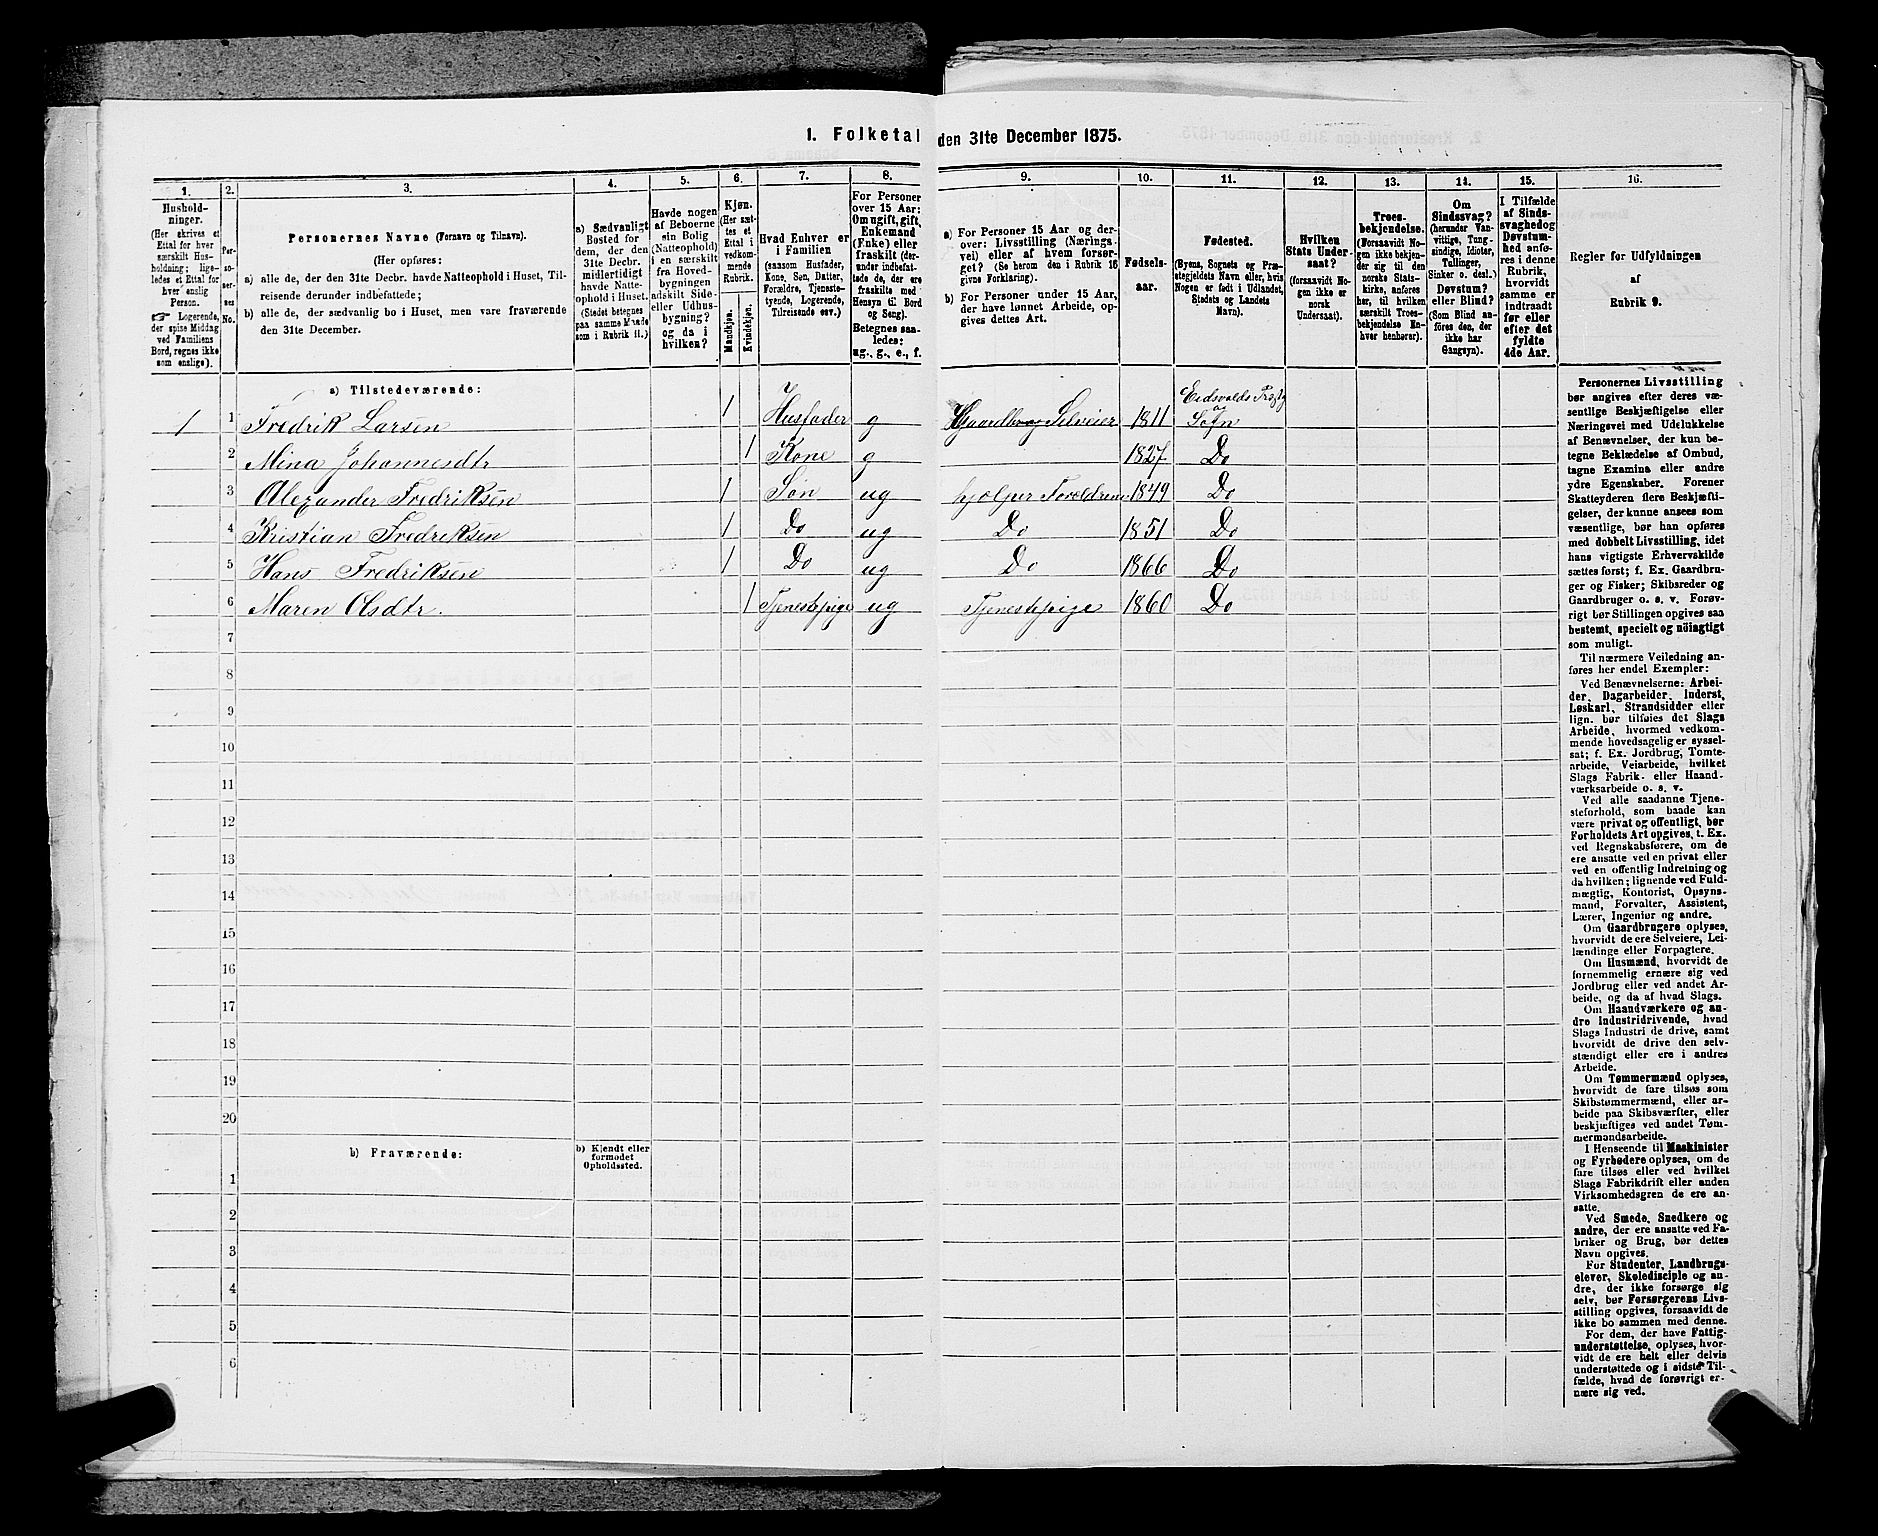 1. Folketal den 31te December 1875.
1. 2. 3. 4. 5. 6. 7. 8. 9. 10. 11. 12. 13. 14. 15. 16.
Hushold-
ninger.
(Her skrives et
Ettal for hver
særskilt Hus-
holdning; lige-
ledes et Ettal for
hver enslig
Person.
☞ Logerende,
der spise Middag
ved Familiens
Bord, regnes ikke
som enslige).
Per-
so-
ner-
nes
No.
Personernes Navne (Fornavn og Tilnavn).
(Her opføres:
a) alle de, der den 31te Decbr. havde Natteophold i Huset, Til-
reisende derunder indbefattede;
b) alle de, der sædvanlig bo i Huset, men vare fraværende
den 31te December.
a) Sædvanligt
Bosted for
dem, der den
31te Decbr.
midlertidigt
havde Natte-
ophold i Huset.
(Stedet betegnes
paa samme Maade
som i Rubrik 11.)
Havde nogen
af Beboerne
sin Bolig
(Natteophold)
i en særskilt
fra Hoved-
bygningen
adskilt Side-
eller Udhus-
bygning?
og da i
hvilken?
Kjøn.
(Her sæt-
tes et
Ettal i
vedkom-
mende
Rubrik.
Mandkjøn.
Kvindekjøn.
Hvad Enhver er
i Familien
(saasom Husfader,
Kone, Søn, Datter,
Forældre, Tjeneste-
tyende, Logerende,
Tilreisende osv.)
For Personer
over 15 Aar:
Om ugift, gift,
Enkemand
(Enke) eller
fraskilt (der-
under indbefat-
tede de, der ere
fraskilte med
Hensyn til Bord
og Seng).
Betegnes saa-
ledes:
ug., g., e., f.
a) For Personer 15 Aar og der-
over: Livsstilling (Nærings-
vei) eller af hvem forsør-
get? (Se herom den i Rubrik 16
givne Forklaring).
b) For Personer under 15 Aar,
der have lønnet Arbeide, op-
gives dettes Art.
Fødsels-
aar.
Fødested.
(Byens, Sognets og Præ-
stegjeldets Navn eller, hvis
Nogen er født i Udlandet,
Stedets og Landets
Navn).
Hvilken
Stats Under-
saat?
(forsaavidt No-
gen ikke er
norsk
Undersaat).
Troes-
bekjendelse.
(Forsaavidt No-
gen ikke bekjen-
der sig til den
norske Stats-
kirke, anføres
her, til hvilken
særskilt Troes-
bekjendelse En-
hver henhører).
Om
Sindssvag?
(herunder Van-
vittige, Tung-
sindige, Idioter,
Tullinger,
Sinker o. desl.)
Døvstum?
eller Blind?
(Som Blind an-
føres den, der
ikke har
Gangsyn).
I Tilfælde
af Sinds-
svaghed og
Døvstum-
hed anfø-
res i denne
Rubrik,
hvorvidt
samme er
indtraadt
før eller
efter det
fyldte
4de Aar.
Regler for Udfyldningen
af
Rubrik 9.
a) Tilstedeværende:
1 1 Fredrik Larsen 1 Husfader g Gaardbrug Selveier 1811 Eidsvolds Prstg
Sogn
2 Mina Johannesdtr 1 Kone g 1827 Do
3 Alexander Fredriksen 1 Søn ug hjælper Foreldrene 1849 Do
4 Kristian Fredriksen 1 Do ug Do 1851 Do
5 Hans Fredriksen 1 Do ug Do 1866 Do
6 Maren Olsdtr. 1 Tjenestepige ug Tjenestepige 1860 Do
7
8
9
10
11
12
13
14
15
16
17
18
19
20
b) Fraværende: b) Kjendt eller
formodet
Opholdssted.
1
2
3
4
5
6
Personernes Livsstilling
bør angives efter deres væ-
sentlige Beskjæftigelse eller
Næringsvei med Udelukkelse
af Benævnelser, der kun be-
tegne Beklædelse af Ombud,
tagne Examina eller andre
ydre Egenskaber. Forener
Skatteyderen flere Beskjæfti-
gelser, der kunne ansees som
væsentlige, bør han opføres
med dobbelt Livsstilling, idet
hans vigtigste Erhvervskilde
sættes først; f. Ex. Gaardbru-
ger og Fisker; Skibsreder og
Gaardbruger o. s. v. Forøv-
rigt bør Stillingen opgives saa
bestemt, specielt og nöiagtigt
som muligt.
Til nærmere Veiledning an-
føres her endel Exempler:
Ved Benævnelserne: Arbei-
der, Dagarbeider, Inderst,
Løskarl, Strandsidder eller
lign. bør tilføies det Slags
Arbeide, hvormed vedkom-
mende hovedsagelig er syssel-
sat; f. Ex. Jordbrug, Tomte-
arbeide, Veiarbeide, hvilket
Slags Fabrik- eller Haand-
værksarbeide o. s. v.
Ved alle saadanne Tjene-
steforhold, som baade kan
være privat og offentligt, bør
Forholdets Art opgives, t. Ex.
ved Regnskabsførere, om de
ere ansatte ved en privat eller
ved en offentlig Indretning og
da hvilken; lignende ved Fuld-
mægtig, Kontorist, Opsyns-
mand, Forvalter, Assistent,
Lærer, Ingeniør og andre.
Om Gaardbrugere oplyses,
hvorvidt de ere Selveiere, Lei-
lændinge eller Forpagtere.
Om Husmænd, hvorvidt de
fornemmelig ernære sig ved
Jordbrug eller ved andet Ar-
beide, og da af hvad Slags.
Om Haandværkere og an-
dre Industridrivende, hvad
Slags Industri de drive, samt
hvorvidt de drive den selv-
stændigt eller ere i andres
Arbeide.
Om Tømmermænd oplyses,
hvorvidt de fare tilsøs som
Skibstømmermænd, eller ar-
beide paa Skibsværfter, eller
beskjæftiges ved andet Tøm-
mermandsarbeide.
I Henseende til Maskinister
og Fyrbødere oplyses, om de
fare tilsøs eller ved hvilket
Slags Fabrikdrift eller anden
Virksomhedsgren de ere an-
satte.
Ved Smede, Snedkere og
andre, der ere ansatte ved Fa-
briker og Brug, bør dettes
Navn opgives.
For Studenter, Landbrugs-
elever, Skoledisciple og an-
dre, der ikke forsørge sig
selv, bør Forsørgerens Livs-
stilling opgives, forsaavidt de
ikke bo sammen med denne.
For dem, der have Fattig-
understøttelse, oplyses, hvor-
vidt de ere helt eller delvis
understøttede og i sidste Til-
fælde, hvad de forøvrigt er-
nære sig ved.